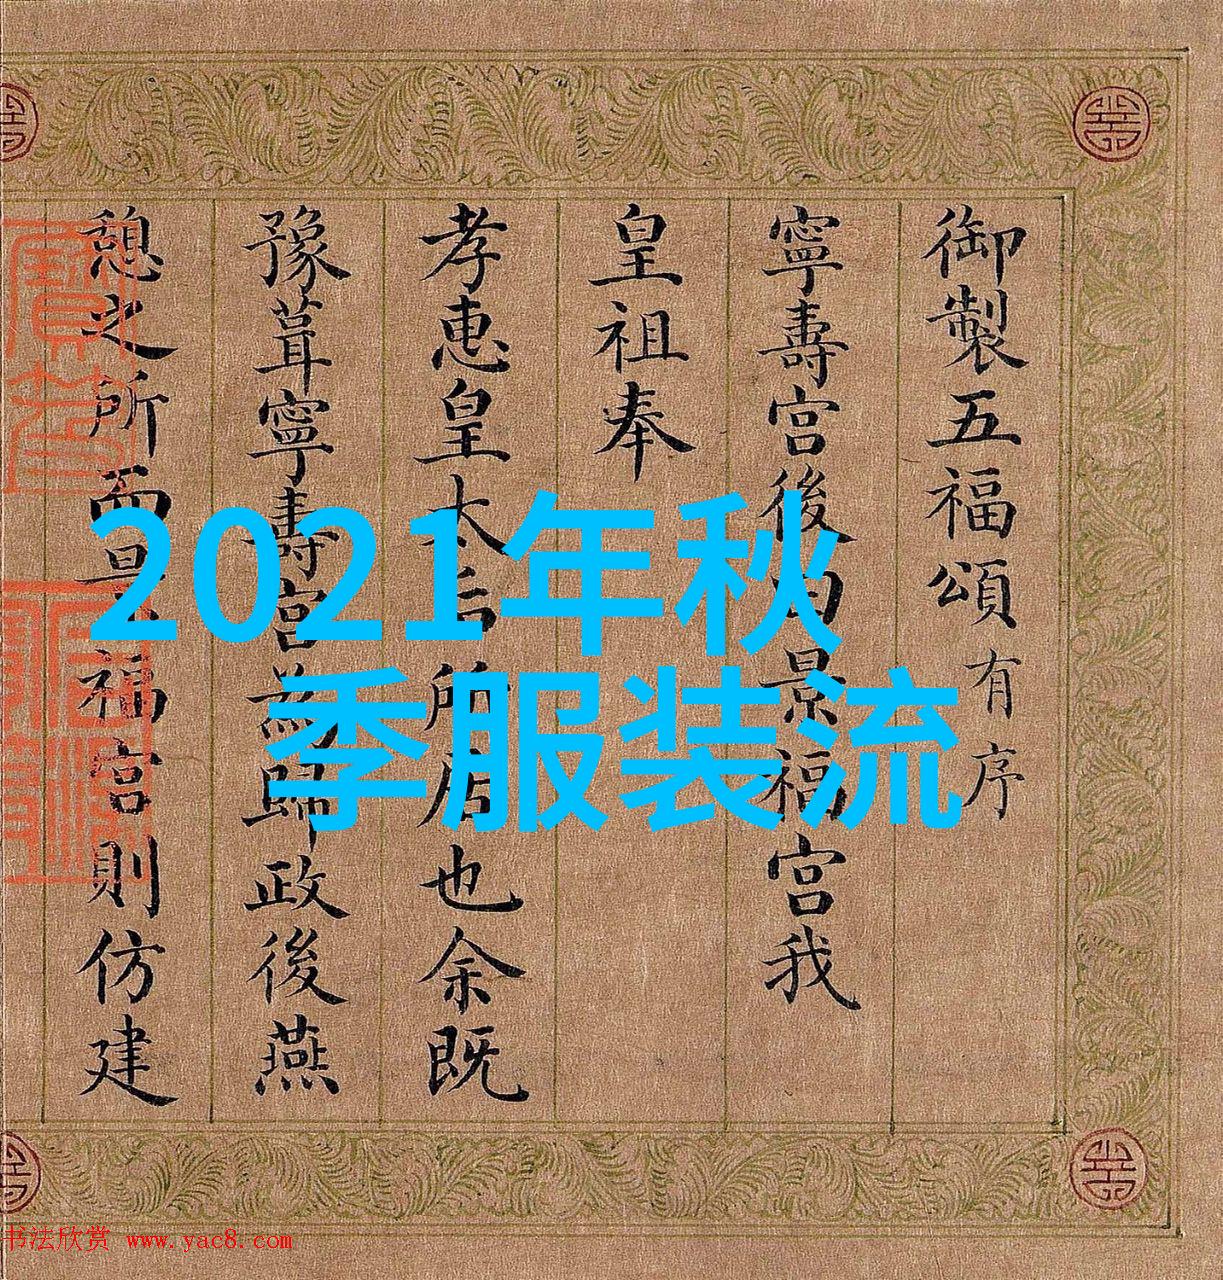 御製五福頌有序
寧壽宮後曰景福宮我
皇祖奉
孝惠皇太后所居也余既
豫葺寧壽宮為歸政後燕
憩之所而景福宮則仿建
2021年秋
季服装流
书法欣赏 www.yac8.com